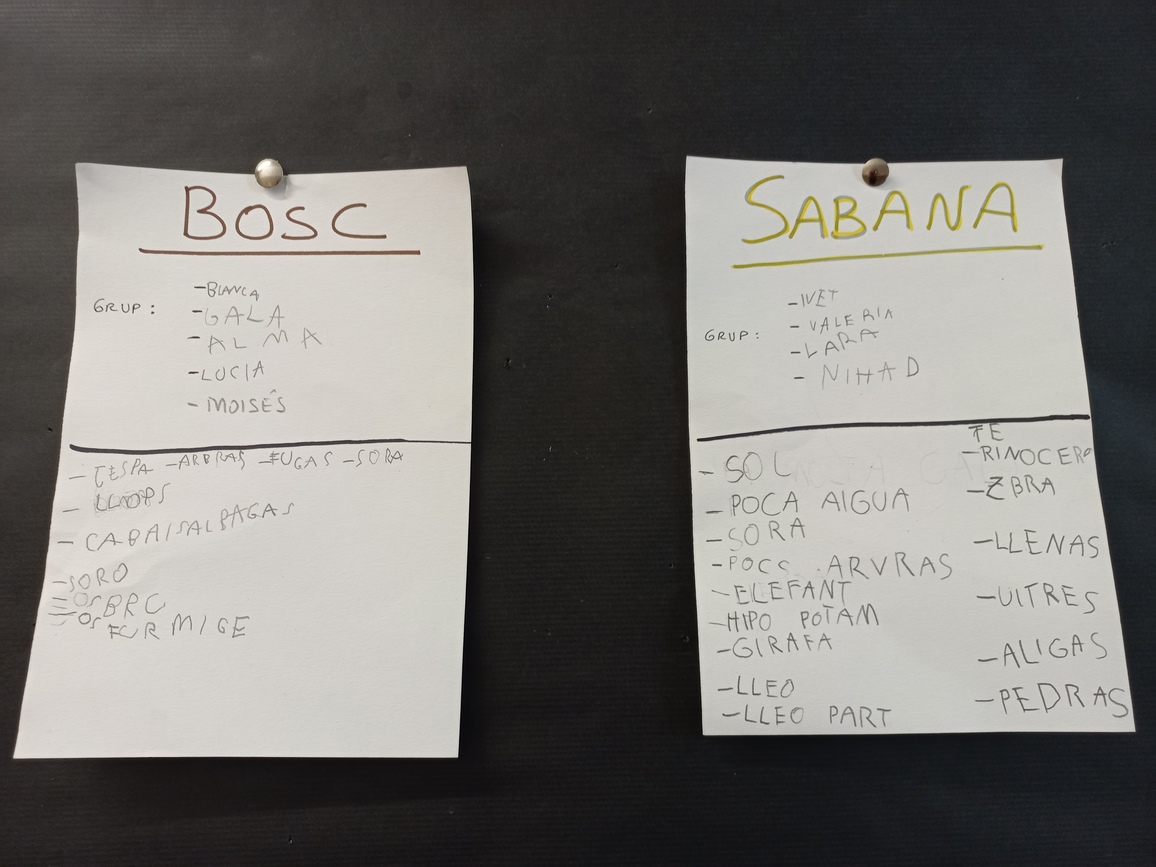 BOSC
GRUP :
-BLANCA
-GALA
-ALMA
-LUCIA
-MOISÊS
-ARBRAS -FUGAS -SORA
-LLOPS
-CABAISALBAGAS
-SORO
FURMIGE
SABANA
GRUP :
-IVET
-VALERIA
-LARA
- NIHAD
-SOL
-POCA AIGUA
-SORA
-POCS ARVRAS
-ELEFANT
-HIPO POTAM
-GIRAFA
-LLEO
-LLEO PART
-RINOCERO
-ZBRA
-LLENAS
-UITRES
-ALIGAS
-PEDRAS